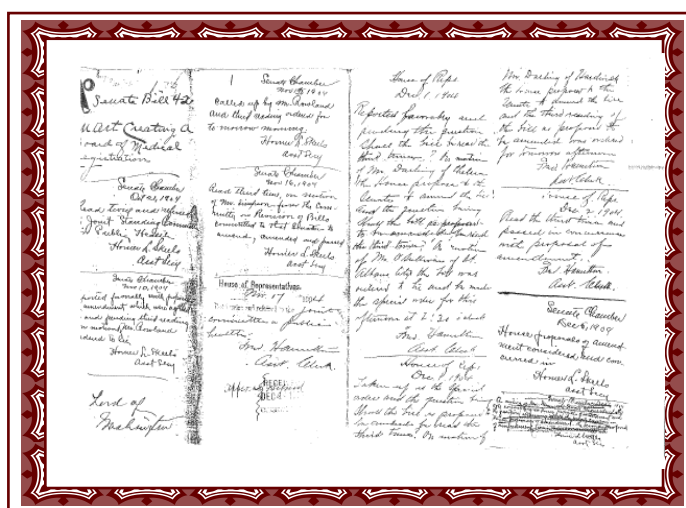 Senate Bill 42
An Act Creating a
Board of Medical
Registration
Senate Chamber
Oct 21, 1904
Read twice and referred
Joint Standing Committee
Public Health
Homer L. Skeels
Asst Secy
Senate Chamber
Nov 10, 1904
reported favorably with proposed
amendment which were agreed
and pending third reading
on motion Mr. Rowland
ordered to lie
Homer L. Skeels
Asst Secy
Lord of
Washington
Senate Chamber
Nov 1904
Called up by Mr. Rowland
and third reading ordered for
tomorrow morning.
Homer L. Skeels
Asst Secy
Senate Chamber
Nov 16, 1904
Read third time, on motion
of Mr. Simpson from the Com-
mittee on Revision of Bills
committed to that Senator to
amend, amended and passed
Homer L. Skeels
Asst Secy
House of Representatives.
Nov. 17 1904
joint
committee on public
health
Hamilton
Asst. Clerk.
House of Reps
Dec 1, 1904
Reported favorably and
pending the question
Shall the bill be read the
third time? On motion
of Mr. Darling of Chelsea
the House propose to the
Senate to amend the bill
and the question being
Shall the bill as proposed
to be amended be read
the third time? On motion
of Mr. O'Sullivan of St.
Albans City the bill was
ordered to lie and be made
the special order for this
afternoon at 2:30 o'clock
Hamilton
Asst Clerk
House of Reps
Dec 1, 1904
Taken up as the special
order and the question being
Shall the bill as proposed
to be amended be read the
third time? On motion of
Mr. Darling of Hardwick
the house propose to the
Senate to amend the bill
and the third reading of
the bill as proposed to
be amended was ordered
for tomorrow afternoon
Hamilton
Asst. Clerk
House of Reps
Dec. 2, 1904.
Read the third time and
passed in concurrence
with proposal of
amendment.
Hamilton
Asst. Clerk.
Senate Chamber
Dec 6, 1904
House proposals of amend-
ment considered and con-
curred in
Homer L. Skeels
Asst Secy